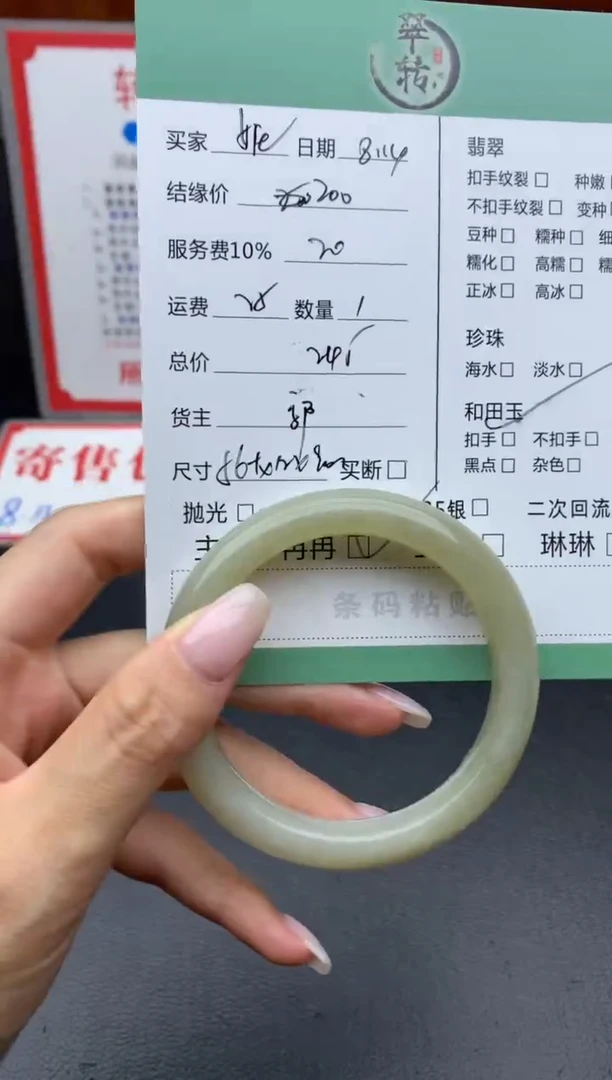 翠
转
买家 日期 8.14
结缘价 200
服务费10% 20
运费 数量 1
总价
货主 郭
尺寸 买断□
抛光□ 银□ 二次回流
冉冉☑ □ 琳琳□
条码粘贴
翡翠
扣手纹裂□ 种嫩
不扣手纹裂□ 变种
豆种□ 糯种□ 细
糯化□ 高糯□ 糯
正冰□ 高冰□
珍珠
海水□ 淡水□
和田玉
扣手□ 不扣手□
黑点□ 杂色□
寄售